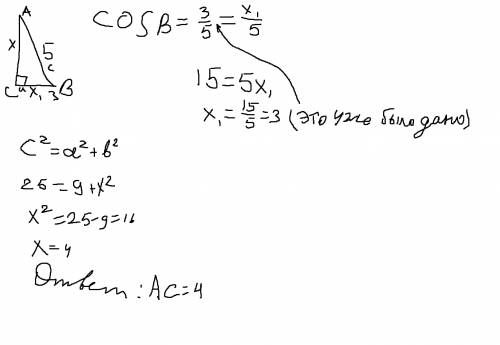 A
x 5
c
C a x₁ 3 B
COSB = 3/5 = x₁/5
15=5x₁
x₁=15/5=3 (это уже было дано)
C²=a²+b²
25=9+x²
x²=25-9=16
x=4
Ответ: AC=4